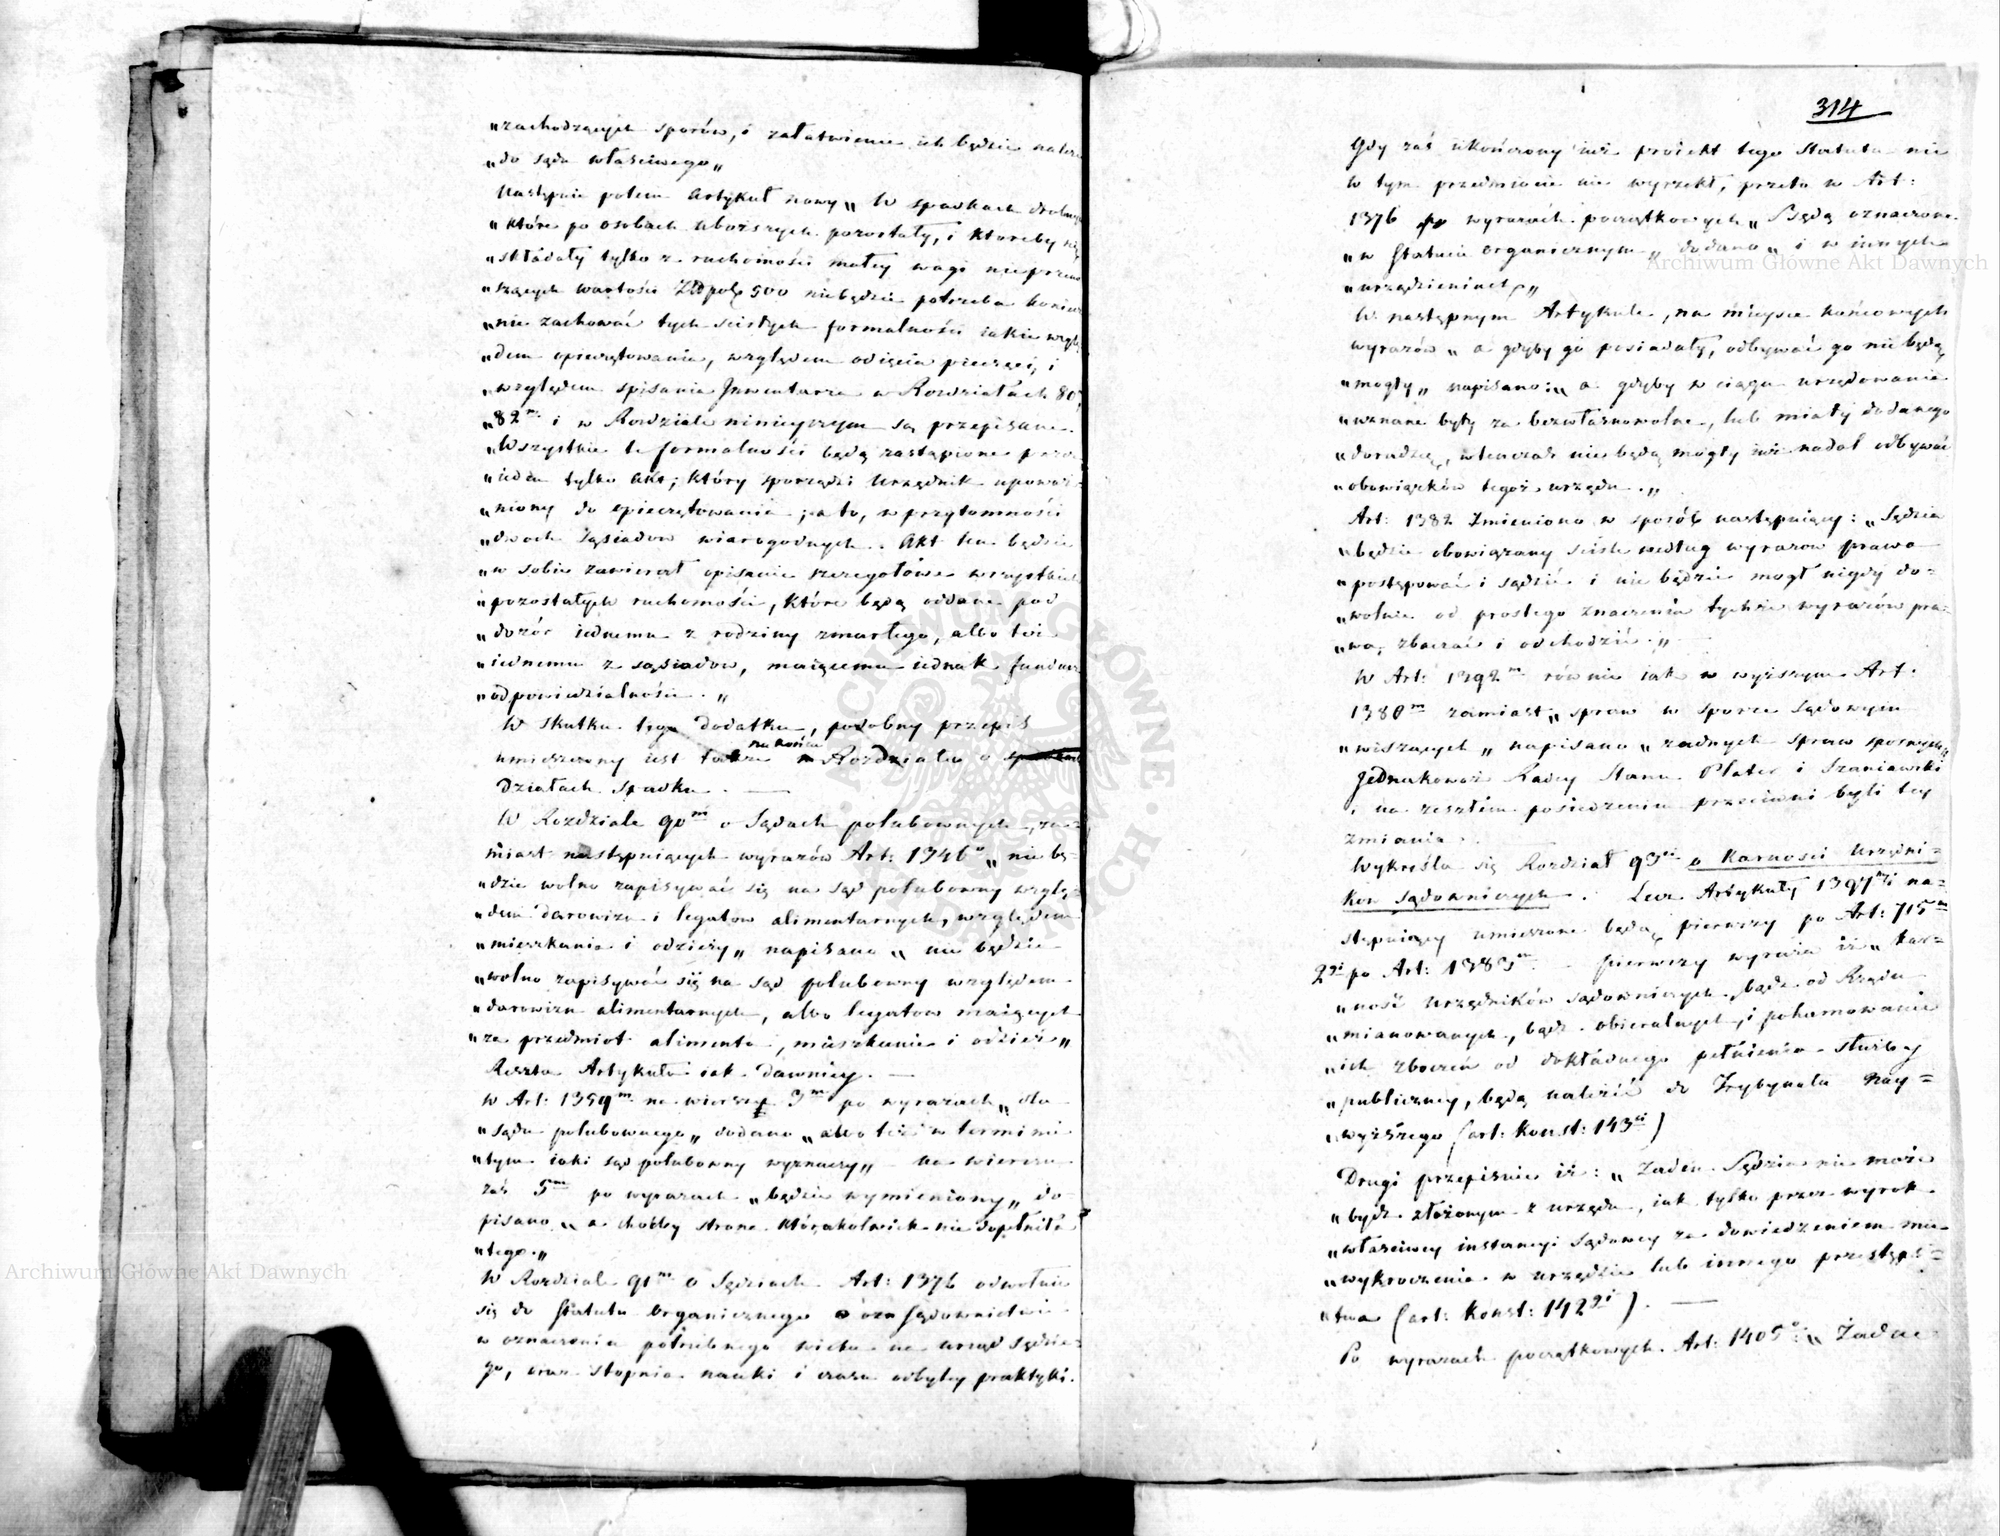 „zachodzących sporów, i załatwienie ich będzie należe
„do sądu właściwego„
Następnie potem Artykuł nowy „W spadkach drobnych
„które po osobach uboższych pozostały, i któreby się
„składały tylko z ruchomości małey wagi nieprzeno
„szących wartości Złł pol. 500 niebędzie potrzeba koniecz
„nie zachować tych scisłych formalności iakie wzglę
„dem opieczętowania, względem odięcia pieczęci, i
„względem spisania Inwentarza w Rozdziałach 80,
„82m i w Rozdziale ninieyszym są przepisane.
„Wszystkie te formalności będą zastąpione przez
„ieden tylko akt; który sporządzi Urzędnik upoważ
„niony do opieczętowania; a to, w przytomności
„dwoch sąsiadow wiarogodnych. Akt ten będzie
„w sobie zawierał opisanie szczegółowe wszystkich
„pozostałych ruchomości, które będą oddane pod
„dozór iednemu z rodziny zmarłego, albo też
„iednemu z sąsiadow, maiącemu iednak fundusz
„odpowiedzialności.„
W skutku tego dodatku, podobny przepis
na końcu
umieszczony iest także w Rozdziału o
Działach spadku. —
W Rozdziale 90m o Sądach polubownych, za=
miast następuiących wyrazów Art: 1346o „nie bę=
„dzie wolno zapisywać się na sąd polubowny wzglę=
„dem darowizn i legatow alimentarnych, względem
„mieszkania i odzieży„ napisano „nie będzie
„wolno zapisywać się na sąd polubowny względem
„darowizn alimentarnych, albo legatow maiących
„za przedmiot alimenta, mieszkanie i odzież„
Reszta Artykułu iak dawniey. —
W Art: 1359m na wierszu 3m po wyrazach „dla
„sądu polubownego„ dodano „albo też w terminie
„tym iaki sąd polubowny wyznaczy„ na wierszu
zaś 5m po wyrazach „będzie wymieniony„ do=
pisano „a choćby strona którakolwiek nie dopełniła
„tego.„
W Rozdziale 91m o Sędziach Art: 1376 odwołuie
się do Statutu Organicznego Sądownictwa
w oznaczeniu potrzebnego wieku na urząd Sędzie=
go, oraz stopnia nauki i czasu odbytey praktyki.
314
Gdy zaś ukończony iuż proiekt tego Statutu nic
w tym przedmiocie nie wyrzekł, przeto w Art:
1376 po wyrazach początkowych „Będą oznaczone
„w Statucie organicznym„ dodano „i w innych
„urządzeniach„
W następnym Artykule, na mieysce końcowych
wyrazów „a gdyby go posiadały, odbywać go nie będą
„mogły„ napisano: „a gdyby w ciągu urzędowania
„uznane były za bezwłasnowolne, lub miały dodanego
„doradzcę, wtenczas nie będą mogły iuż nadal odbywać
„obowiązków tegoż urzędu.„
Art: 1382 Zmieniono w sposób następuiący: „Sędzia
„będzie obowiązany ściśle według wyrazow prawa
„postępować i sądzić i nie będzie mogł nigdy do=
„wolnie od prostego znaczenia tychże wyrazów pra=
„wa, zbaczać i odchodzić.„
W Art: 1392m równie iak w wyższym Art:
1380m zamiast „spraw w sporze sądowym
„wiszących„ napisano „żadnych spraw spornych„
Jednakowoż Radcy Stanu Plater i Szaniawski
na zeszłém posiedzeniu przeciwni byli tey
zmianie.
Wykreśla się Rozdział 93ci o Karności Urzędni=
kow Sądowniczych. Lecz Artykuły 1397my i na=
stępuiący umieszczone będą, pierwszy po Art: 715m
2gi po Art: 1383m. — Pierwszy wyraża iż „kar=
„ność urzędników sądowniczych, bądź od Rządu
„mianowanych, bądź obieralnych, i pohamowanie
„ich zboczeń od dokładnego pełnienia służby
„publiczney, będą należeć do Trybynału Nay=
„wyższego (art: konst: 143ci)
Drugi przepisuie iż: „Żaden Sędzia nie może
„bydź złożonym z urzędu, iak tylko przez wyrok
„właściwey instancyi Sądowey za dowiedzeniem mu
„wykroczenia w urzędzie lub innego przestęps=
„twa (art: konst: 142gi). —
Po wyrazach początkowych Art: 1405o: „Żadne
Archiwum Główne Akt Dawnych
Archiwum Główne Akt Dawnych